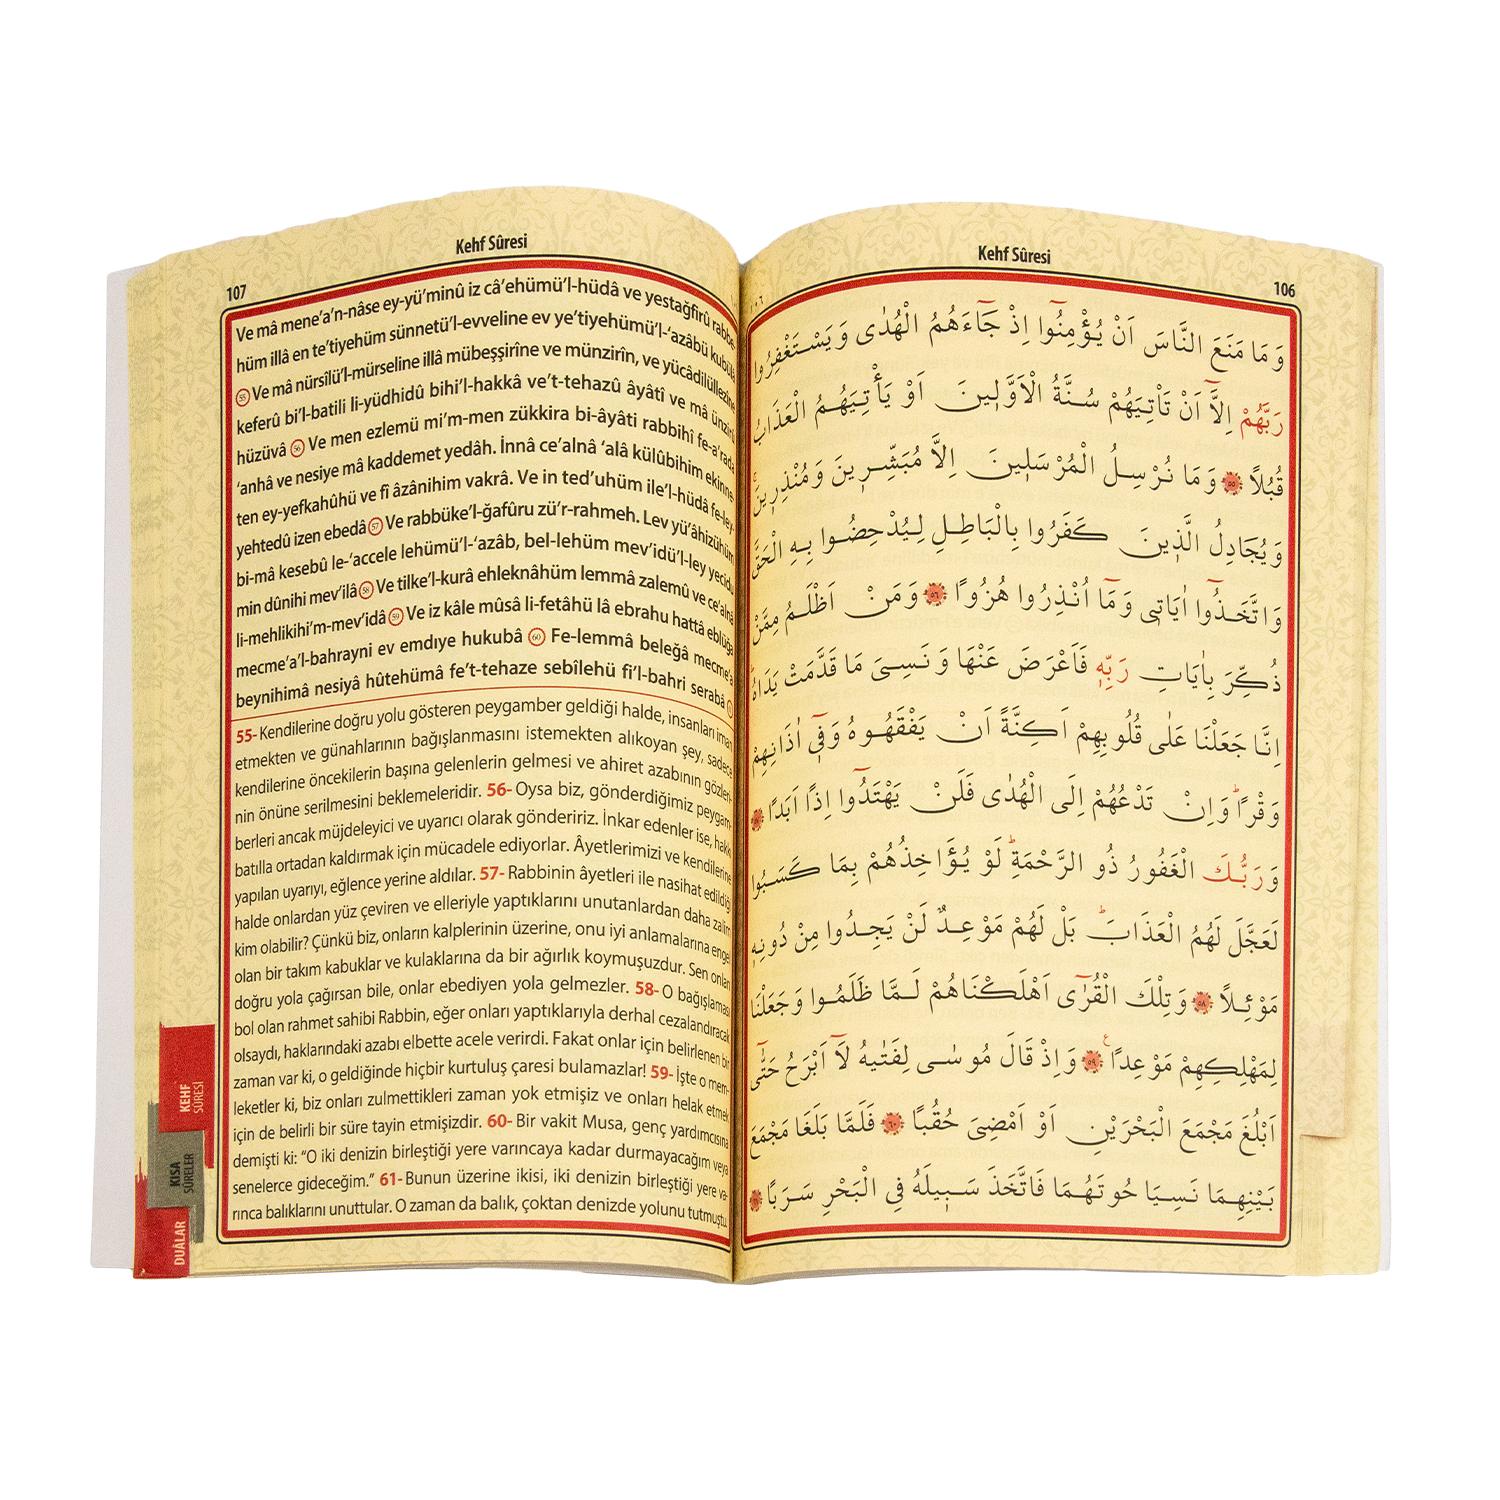 Kehf Sûresi
106
وَمَا مَنَعَ النَّاسَ اَنْ يُؤْمِنُٓوا اِذْ جَٓاءَهُمُ الْهُدٰى وَيَسْتَغْفِرُوا
رَبَّهُمْ اِلَّٓا اَنْ تَأْتِيَهُمْ سُنَّةُ الْاَوَّل۪ينَ اَوْ يَأْتِيَهُمُ الْعَذَابُ
قُبُلًا ﴿٥٥﴾ وَمَا نُرْسِلُ الْمُرْسَل۪ينَ اِلَّا مُبَشِّر۪ينَ وَمُنْذِر۪ينَۚ
وَيُجَادِلُ الَّذ۪ينَ كَفَرُوا بِالْبَاطِلِ لِيُدْحِضُوا بِهِ الْحَقَّ
وَاتَّخَذُٓوا اٰيَات۪ي وَمَٓا اُنْذِرُوا هُزُوًا ﴿٥٦﴾ وَمَنْ اَظْلَمُ مِمَّنْ
ذُكِّرَ بِاٰيَاتِ رَبِّه۪ فَاَعْرَضَ عَنْهَا وَنَسِيَ مَا قَدَّمَتْ يَدَاهُۜ
اِنَّا جَعَلْنَا عَلٰى قُلُوبِهِمْ اَكِنَّةً اَنْ يَفْقَهُوهُ وَف۪ٓي اٰذَانِهِمْ
وَقْرًاۜ وَاِنْ تَدْعُهُمْ اِلَى الْهُدٰى فَلَنْ يَهْتَدُٓوا اِذًا اَبَدًا ﴿٥٧﴾
وَرَبُّكَ الْغَفُورُ ذُو الرَّحْمَةِۜ لَوْ يُؤَاخِذُهُمْ بِمَا كَسَبُوا
لَعَجَّلَ لَهُمُ الْعَذَابَۜ بَلْ لَهُمْ مَوْعِدٌ لَنْ يَجِدُوا مِنْ دُونِه۪
مَوْئِلًا ﴿٥٨﴾ وَتِلْكَ الْقُرٰٓى اَهْلَكْنَاهُمْ لَمَّا ظَلَمُوا وَجَعَلْنَا
لِمَهْلِكِهِمْ مَوْعِدًا۟ ﴿٥٩﴾ وَاِذْ قَالَ مُوسٰى لِفَتٰيهُ لَٓا اَبْرَحُ حَتّٰٓى
اَبْلُغَ مَجْمَعَ الْبَحْرَيْنِ اَوْ اَمْضِيَ حُقُبًا ﴿٦٠﴾ فَلَمَّا بَلَغَا مَجْمَعَ
بَيْنِهِمَا نَسِيَا حُوتَهُمَا فَاتَّخَذَ سَب۪يلَهُ فِي الْبَحْرِ سَرَبًا ﴿٦١﴾
Kehf Sûresi
107
Ve mâ mene'a'n-nâse ey-yü'minû iz câ'ehümü'l-hüdâ ve yestağfirû rabbe-
hüm illâ en te'tiyehüm sünnetü'l-evveline ev ye'tiyehümü'l-'azâbü kubülâ
55 Ve mâ nürsilü'l-mürseline illâ mübeşşirîne ve münzirîn, ve yücâdilüllezine
keferû bi'l-batili li-yüdhidû bihi'l-hakkâ ve't-tehazû âyâtî ve mâ ünzirû
hüzüvâ 56 Ve men ezlemü mi'm-men zükkira bi-âyâti rabbihî fe-a'rada
'anhâ ve nesiye mâ kaddemet yedâh. İnnâ ce'alnâ 'alâ külûbihim ekinne-
ten ey-yefkahûhü ve fî âzânihim vakrâ. Ve in ted'uhüm ile'l-hüdâ fe-ley-
yehtedû izen ebedâ 57 Ve rabbüke'l-ğafûru zü'r-rahmeh. Lev yü'âhizühüm
bi-mâ kesebû le-'accele lehümü'l-'azâb, bel-lehüm mev'idü'l-ley yecidû
min dûnihi mev'ilâ 58 Ve tilke'l-kurâ ehleknâhüm lemmâ zalemû ve ce'alnâ
li-mehlikihi'm-mev'idâ 59 Ve iz kâle mûsâ li-fetâhü lâ ebrahu hattâ eblüğa
mecme'a'l-bahrayni ev emdıye hukubâ 60 Fe-lemmâ beleğâ mecme'a
beynihimâ nesiyâ hûtehümâ fe't-tehaze sebîlehü fi'l-bahri serabâ
55- Kendilerine doğru yolu gösteren peygamber geldiği halde, insanları iman
etmekten ve günahlarının bağışlanmasını istemekten alıkoyan şey, sadece
kendilerine öncekilerin başına gelenlerin gelmesi ve ahiret azabının gözleri-
nin önüne serilmesini beklemeleridir. 56- Oysa biz, gönderdiğimiz peygam-
berleri ancak müjdeleyici ve uyarıcı olarak göndeririz. İnkar edenler ise, hakkı
batılla ortadan kaldırmak için mücadele ediyorlar. Âyetlerimizi ve kendilerine
yapılan uyarıyı, eğlence yerine aldılar. 57- Rabbinin âyetleri ile nasihat edildiği
halde onlardan yüz çeviren ve elleriyle yaptıklarını unutanlardan daha zalim
kim olabilir? Çünkü biz, onların kalplerinin üzerine, onu iyi anlamalarına engel
olan bir takım kabuklar ve kulaklarına da bir ağırlık koymuşuzdur. Sen onları
doğru yola çağırsan bile, onlar ebediyen yola gelmezler. 58- O bağışlaması
bol olan rahmet sahibi Rabbin, eğer onları yaptıklarıyla derhal cezalandıracak
olsaydı, haklarındaki azabı elbette acele verirdi. Fakat onlar için belirlenen bir
zaman var ki, o geldiğinde hiçbir kurtuluş çaresi bulamazlar! 59- İşte o mem-
leketler ki, biz onları zulmettikleri zaman yok etmişiz ve onları helak etmek
için de belirli bir süre tayin etmişizdir. 60- Bir vakit Musa, genç yardımcısına
demişti ki: "O iki denizin birleştiği yere varıncaya kadar durmayacağım veya
senelerce gideceğim." 61- Bunun üzerine ikisi, iki denizin birleştiği yere va-
rınca balıklarını unuttular. O zaman da balık, çoktan denizde yolunu tutmuştu.
KEHF
SÛRESİ
KISA
SÛRELER
DUÂLAR